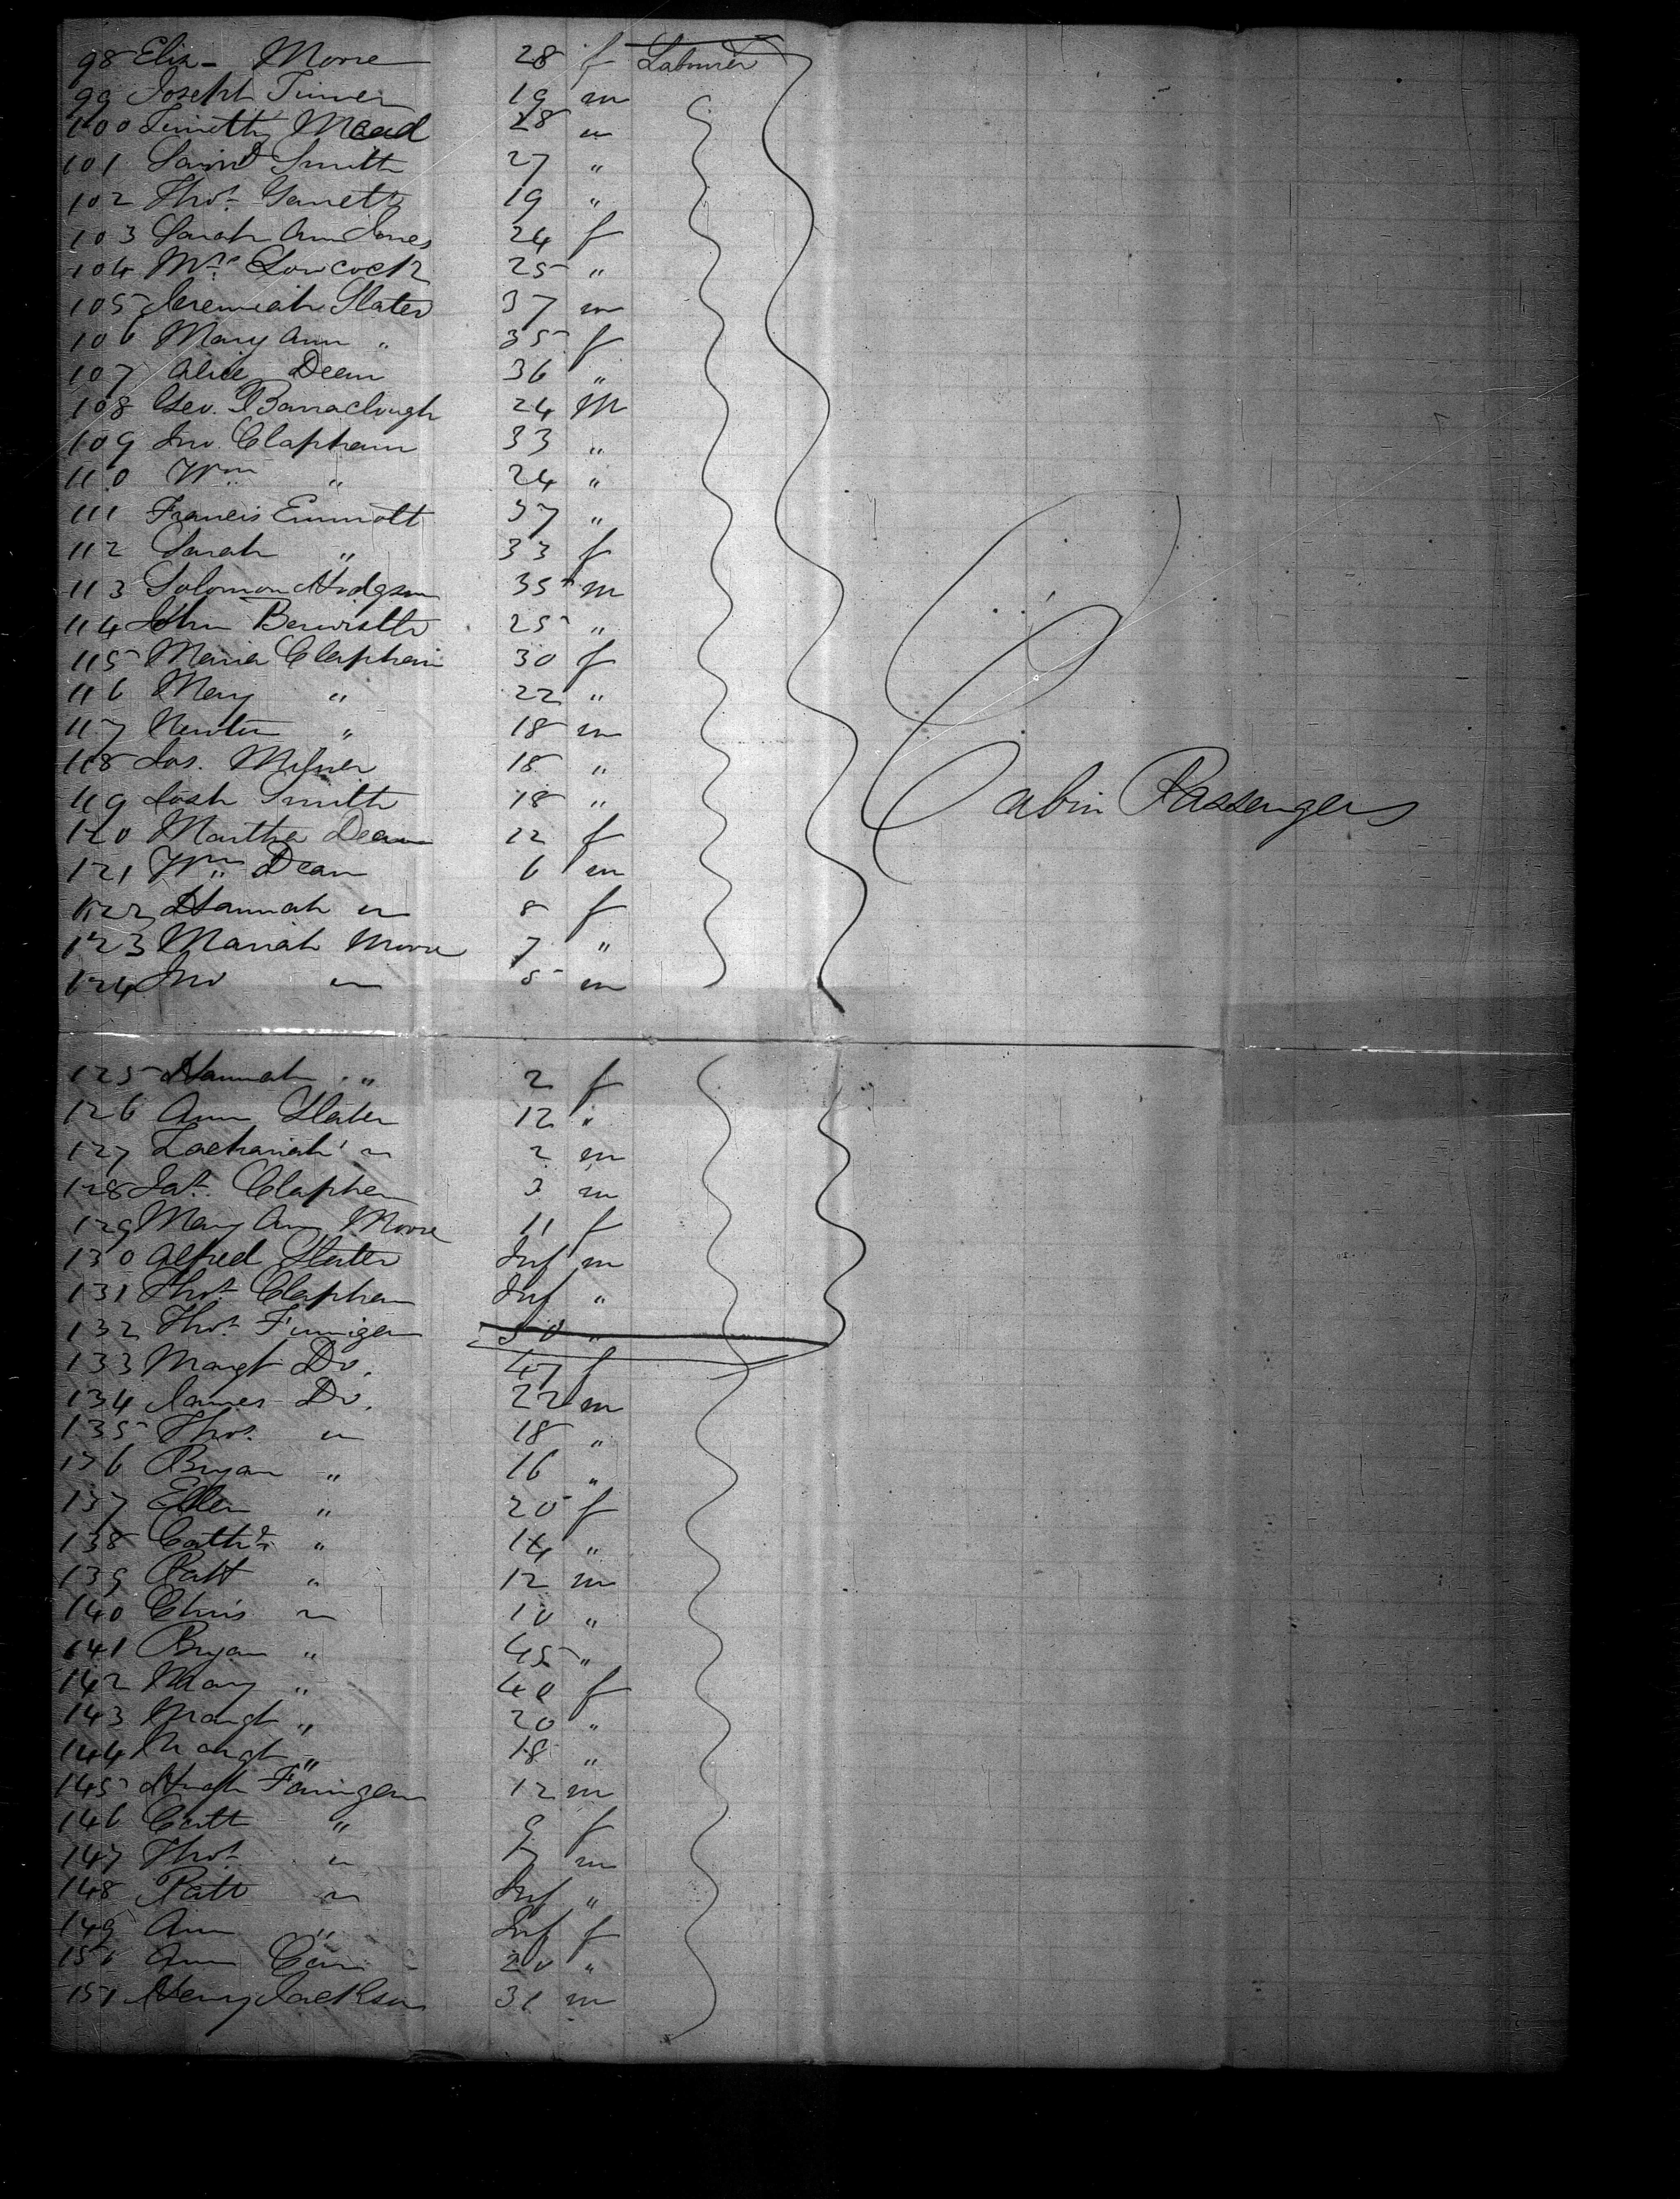 98 Eliz- Moore 28 f Labourer
99 Joseph Turner 19 m
100 Timothy Mead 28 "
101 David Smith 27 "
102 Thos. Garrett 19 "
103 Sarah Ann Jones 24 f
104 Mrs. Lowcock 25 "
105 Jeremiah Slater 37 m
106 Mary Ann " 35 f
107 Alice Dean 36 "
108 Geo. Barraclough 24 M
109 Jno. Clapham 33 "
110 Wm " 24 "
111 Francis Emmott 37 "
112 Sarah " 33 f
113 Solomon Hodgson 35 m
114 John 25 "
115 Maria Clapham 30 f
116 Mary " 22 "
117 Newton " 18 m
118 Jos. Milner 18 "
119 Josh Smith 18 "
Cabin Passengers
120 Martha Dean 12 f
121 Wm Dean 6 m
122 Hannah " 8 f
123 Mariah Moore 7 "
124 Jno " 5 m
125 Hannah " 2 f
126 Ann Slater 12 "
127 Zachariah " 2 m
128 Jas. Clapham 3 m
129 Mary Ann Moore 11 f
130 Alfred Slater Inf m
131 Thos. Clapham Inf "
132 Thos. Finnigan 50 "
133 Margt Do. 47 f
134 James Do. 22 m
135 Thos. " 18 "
136 Bryan " 16 "
137 Ellen " 20 f
138 Cathe " 14 "
139 Patt " 12 m
140 Chris " 10 "
141 Bryan " 45 "
142 Mary " 40 f
143 Margt " 20 "
144 Margt " 18 "
145 Hugh Finnigan 12 m
146 Cath " 9 f
147 Thos. " 7 m
148 Patt " Inf "
149 Ann " Inf f
150 Ann 20 "
151 Henry Jackson 31 m